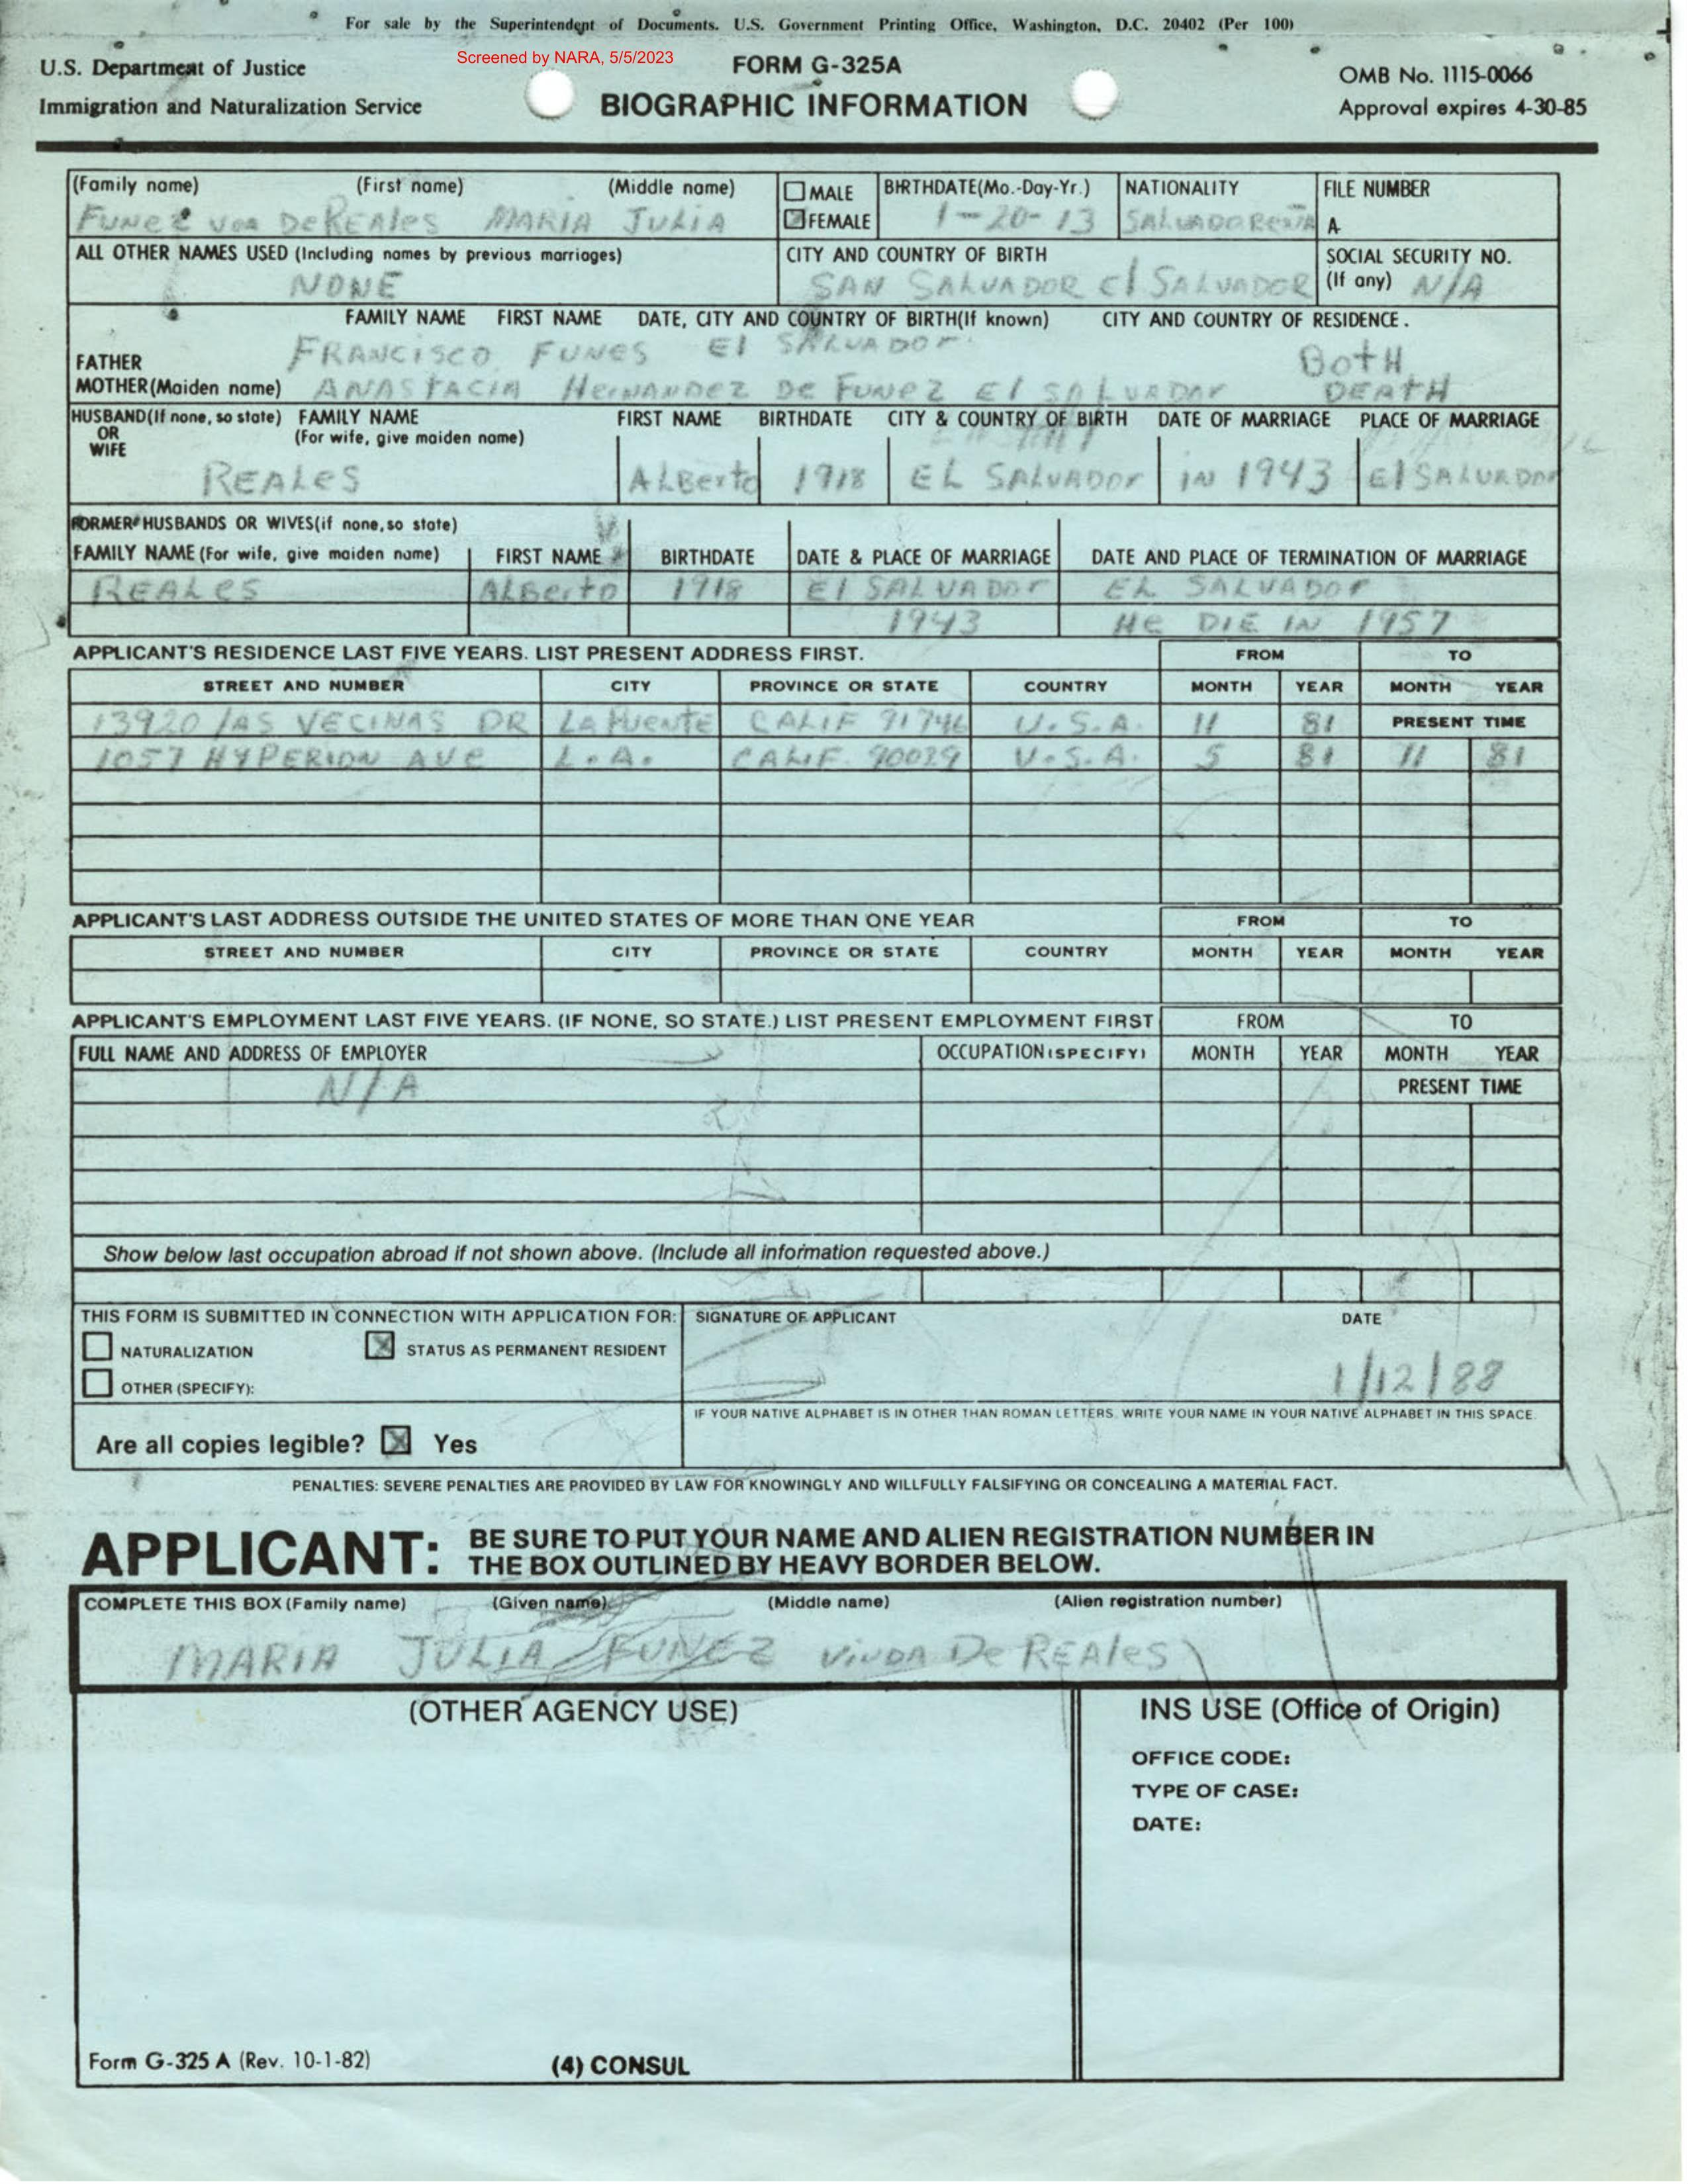 For sale by the Superintendent of Documents, U.S. Government Printing Office, Washington, D.C. 20402 (Per 100)
Screened by NARA, 5/5/2023
U.S. Department of Justice
Immigration and Naturalization Service
FORM G-325A
BIOGRAPHIC INFORMATION
OMB No. 1115-0066
Approval expires 4-30-85
(Family name) (First name) (Middle name) MALE BIRTHDATE(Mo.-Day-Yr.) NATIONALITY FILE NUMBER
FUNEZ VDA DeREAles MARIA JULIA FEMALE 1-20-13 SALVADOREÑA A
ALL OTHER NAMES USED (Including names by previous marriages) CITY AND COUNTRY OF BIRTH SOCIAL SECURITY NO.
NONE SAN SALVADOR El SALVADOR (If any) N/A
FAMILY NAME FIRST NAME DATE, CITY AND COUNTRY OF BIRTH(If known) CITY AND COUNTRY OF RESIDENCE.
FATHER FRANCISCO FUNES El SALVADOR BOTH
MOTHER(Maiden name) ANASTACIA HERNANDEZ DE FUNEZ El SALVADOR DEATH
HUSBAND(If none, so state) FAMILY NAME FIRST NAME BIRTHDATE CITY & COUNTRY OF BIRTH DATE OF MARRIAGE PLACE OF MARRIAGE
OR (For wife, give maiden name)
WIFE
REALES Alberto 1918 EL SALVADOR IN 1943 El SALVADOR
FORMER HUSBANDS OR WIVES(if none,so state)
FAMILY NAME (For wife, give maiden name) FIRST NAME BIRTHDATE DATE & PLACE OF MARRIAGE DATE AND PLACE OF TERMINATION OF MARRIAGE
REALES Alberto 1918 El SALVADOR EL SALVADOR
1943 He DIE IN 1957
APPLICANT'S RESIDENCE LAST FIVE YEARS. LIST PRESENT ADDRESS FIRST. FROM TO
STREET AND NUMBER CITY PROVINCE OR STATE COUNTRY MONTH YEAR MONTH YEAR
13920 lAS VECINAS DR LA PUENTE CALIF 91746 U.S.A. 11 81 PRESENT TIME
1057 HYPERION AVE L.A. CALIF. 90029 U.S.A. 5 81 11 81
APPLICANT'S LAST ADDRESS OUTSIDE THE UNITED STATES OF MORE THAN ONE YEAR FROM TO
STREET AND NUMBER CITY PROVINCE OR STATE COUNTRY MONTH YEAR MONTH YEAR
APPLICANT'S EMPLOYMENT LAST FIVE YEARS. (IF NONE, SO STATE.) LIST PRESENT EMPLOYMENT FIRST FROM TO
FULL NAME AND ADDRESS OF EMPLOYER OCCUPATION(SPECIFY) MONTH YEAR MONTH YEAR
N/A PRESENT TIME
Show below last occupation abroad if not shown above. (Include all information requested above.)
THIS FORM IS SUBMITTED IN CONNECTION WITH APPLICATION FOR: SIGNATURE OF APPLICANT DATE
NATURALIZATION X STATUS AS PERMANENT RESIDENT
OTHER (SPECIFY): 1/12/88
IF YOUR NATIVE ALPHABET IS IN OTHER THAN ROMAN LETTERS, WRITE YOUR NAME IN YOUR NATIVE ALPHABET IN THIS SPACE.
Are all copies legible? X Yes
PENALTIES: SEVERE PENALTIES ARE PROVIDED BY LAW FOR KNOWINGLY AND WILLFULLY FALSIFYING OR CONCEALING A MATERIAL FACT.
APPLICANT: BE SURE TO PUT YOUR NAME AND ALIEN REGISTRATION NUMBER IN
THE BOX OUTLINED BY HEAVY BORDER BELOW.
COMPLETE THIS BOX (Family name) (Given name) (Middle name) (Alien registration number)
MARIA JULIA FUNEZ VIUDA De REAles
(OTHER AGENCY USE) INS USE (Office of Origin)
OFFICE CODE:
TYPE OF CASE:
DATE:
Form G-325 A (Rev. 10-1-82) (4) CONSUL